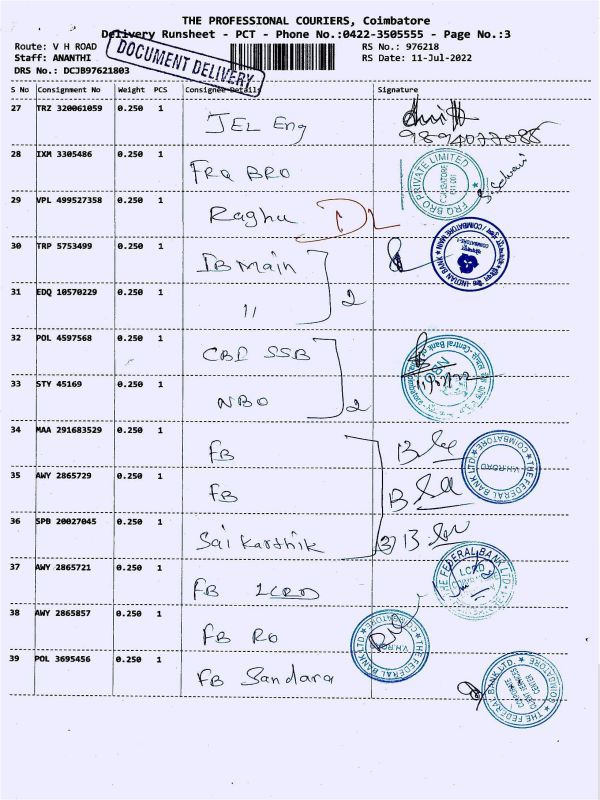 THE PROFESSIONAL COURIERS, Coimbatore
Delivery Runsheet - PCT - Phone No.:0422-3505555 - Page No.:3
Route: V H ROAD RS No.: 976218
Staff: ANANTHI RS Date: 11-Jul-2022
DRS No.: DCJB97621803
DOCUMENT DELIVERY
S No Consignment No Weight PCS Consignee Details Signature
27 TRZ 320061059 0.250 1 JEL Eng
9894077085
28 IXM 3305486 0.250 1 FRQ BRO
FRQ BRO PRIVATE LIMITED
COIMBATORE
641 001
29 VPL 499527358 0.250 1 Raghu DL
30 TRP 5753499 0.250 1 IB Main
INDIAN BANK
COIMBATORE MAIN
31 EDQ 10570229 0.250 1 11 2
32 POL 4597568 0.250 1 CBI SSB
Central Bank
33 STY 45169 0.250 1 NBO 2
34 MAA 291683529 0.250 1 FB
THE FEDERAL BANK LTD.
V.H.ROAD
COIMBATORE
35 AWY 2865729 0.250 1 FB
36 SPB 20027045 0.250 1 Sai Karthik 3
37 AWY 2865721 0.250 1 FB LCRD
THE FEDERAL BANK LTD
LCRD
38 AWY 2865857 0.250 1 FB RO
THE FEDERAL BANK LTD
V.H.ROAD
COIMBATORE
39 POL 3695456 0.250 1 FB Sandara
THE FEDERAL BANK LTD.
CORPORATE
CLIENT SERVICES
CENTER
COIMBATORE